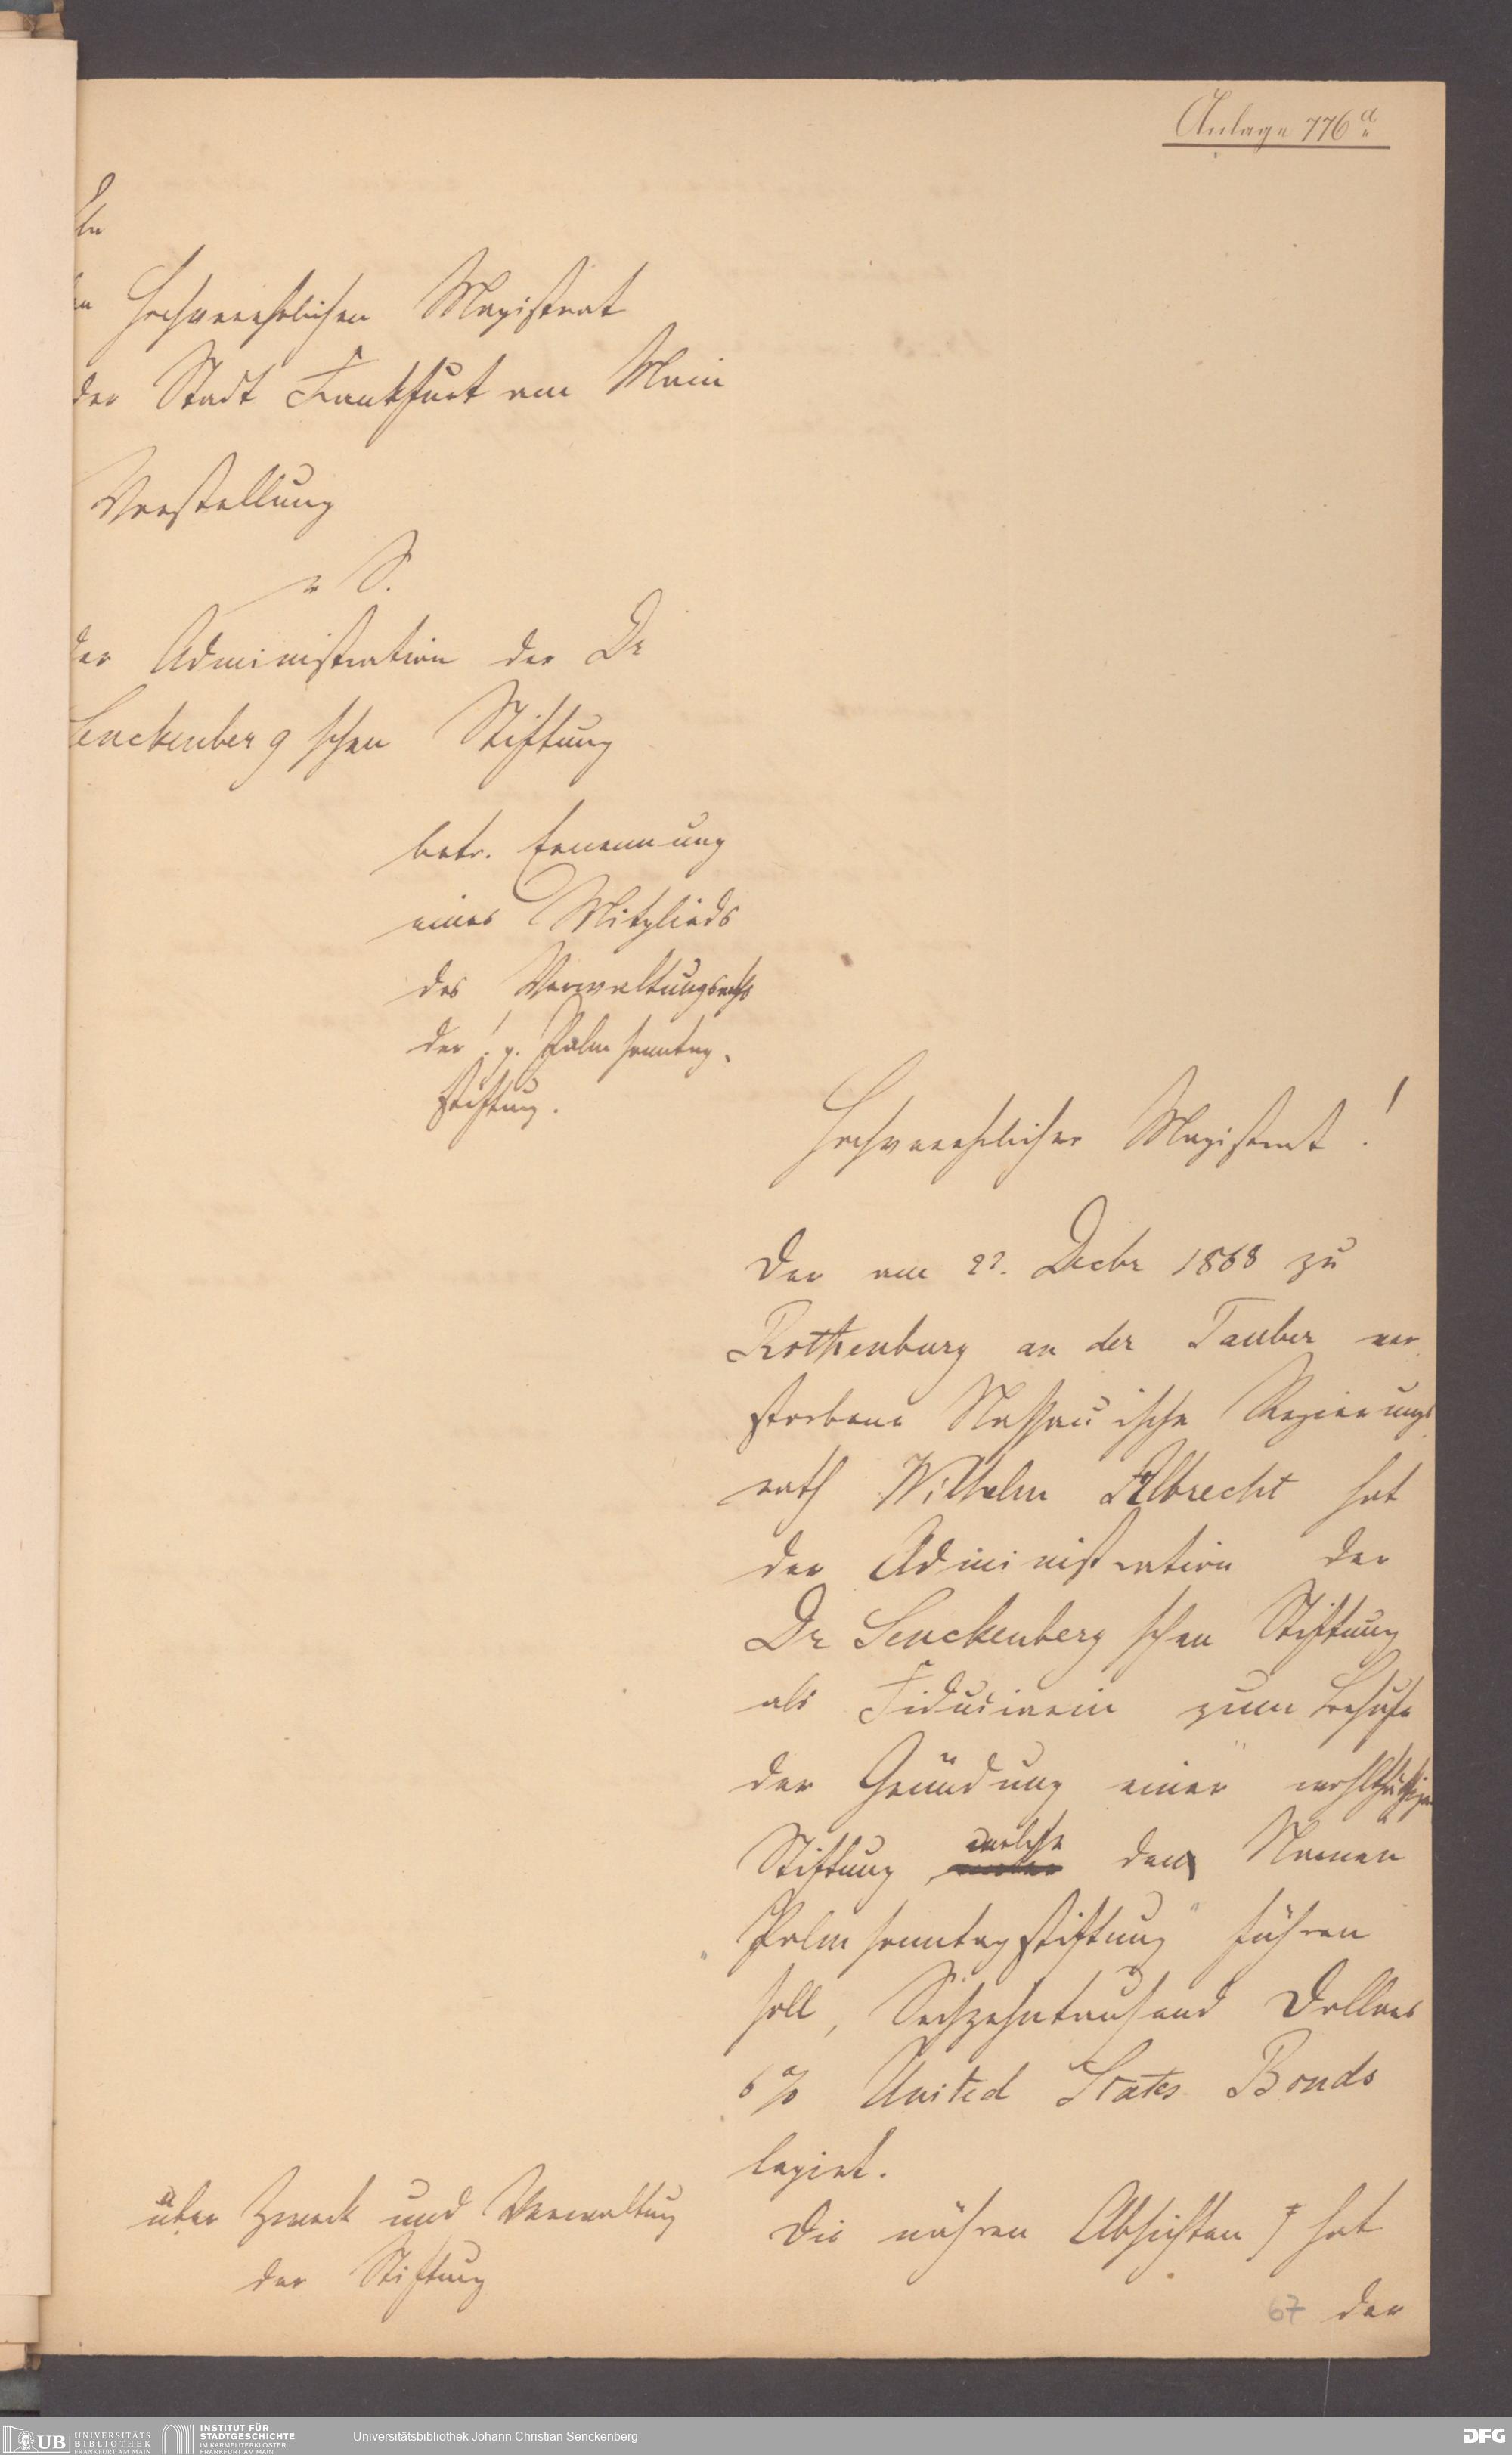 Anlage 776a
An
en Hochverehrlichen Magistrat
der Stadt Frankfurt am Main
Vorstellung
v. S.
der Administration der Dr
Senckenbergschen Stiftung
betr. Ernennung
eines Mitglieds
des Verwaltungsraths
der s. g. Palmsonntag-
stiftung.
Hochverehrlicher Magistrat!
Der am 22. Decbr 1868 zu
Rothenburg an der Tauber ver
storbene Nassauische Regierungs
rath Wilhelm Albrecht hat
der Administration der
Dr Senckenbergschen Stiftung
als Fiduciarin zum Behufe
der Gründung einer wohlthätigen
Stiftung, welche den Namen
„Palmsonntagstiftung“ führen
soll, Sechzehntausend Dollars
6% United States Bonds
legirt.
Die nähren Absichten Ŧ hat
über Zweck und Verwaltung
der Stiftung
67 der
UB UNIVERSITÄTS
BIBLIOTHEK
FRANKFURT AM MAIN
INSTITUT FÜR
STADTGESCHICHTE
IM KARMELITERKLOSTER
FRANKFURT AM MAIN
Universitätsbibliothek Johann Christian Senckenberg
DFG